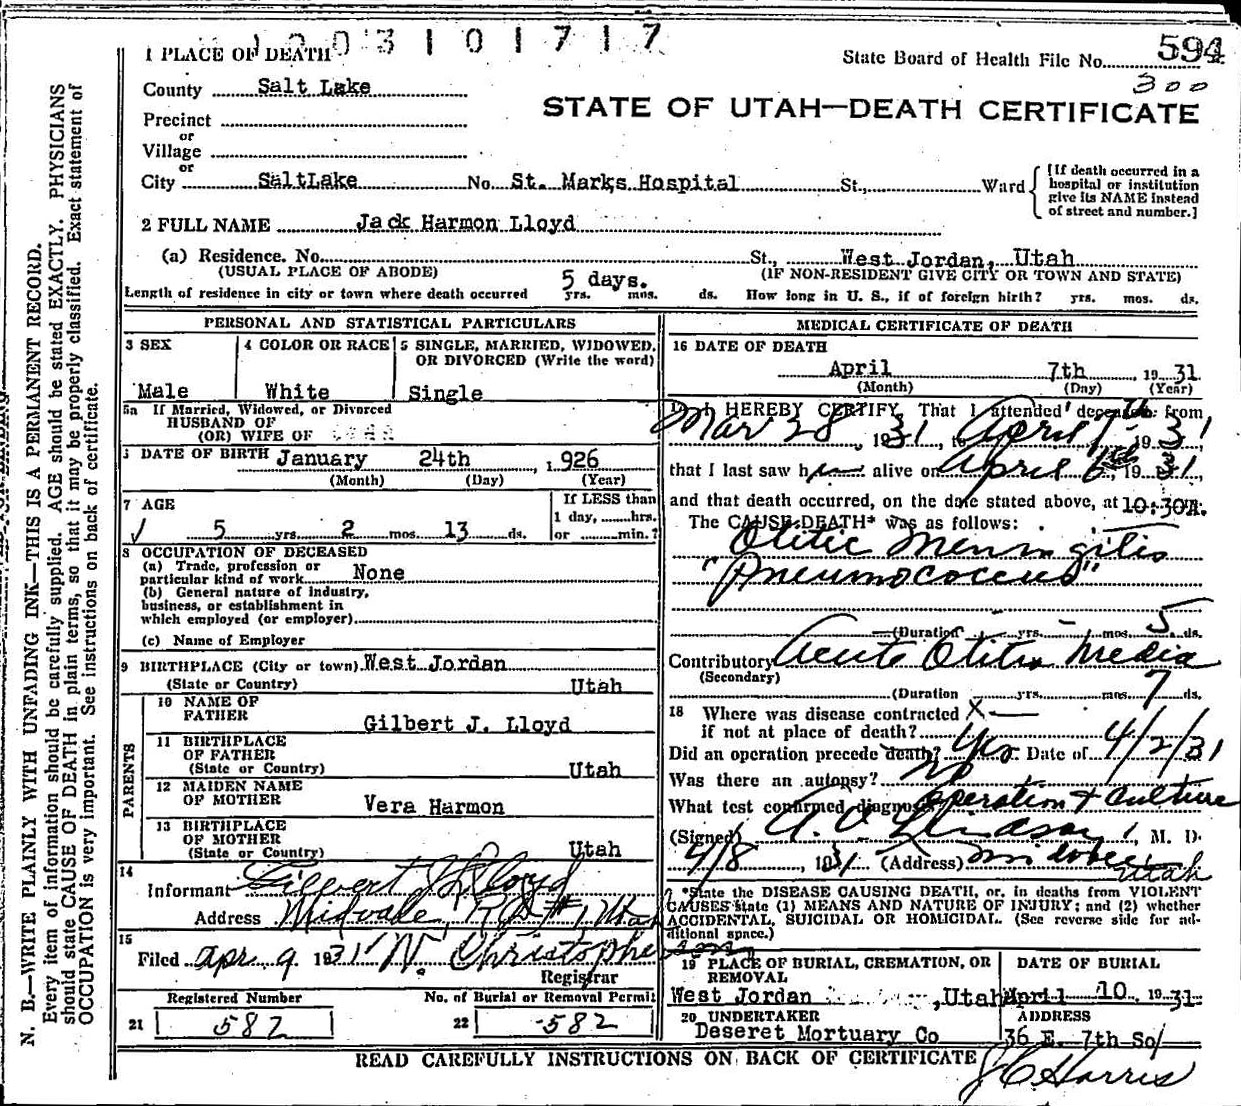 1 PLACE OF DEATH 1 2 0 3 1 0 1 7 1 7
State Board of Health File No. 594
300
County Salt Lake
STATE OF UTAH—DEATH CERTIFICATE
Precinct
or
Village
or
City SaltLake No. St. Marks Hospital St., Ward
[If death occurred in a hospital or institution give its NAME instead of street and number.]
2 FULL NAME Jack Harmon Lloyd
(a) Residence. No. St., West Jordan, Utah
(USUAL PLACE OF ABODE) (IF NON-RESIDENT GIVE CITY OR TOWN AND STATE)
5 days.
Length of residence in city or town where death occurred yrs. mos. ds. How long in U. S., if of foreign birth? yrs. mos. ds.
PERSONAL AND STATISTICAL PARTICULARS
3 SEX
Male
4 COLOR OR RACE
White
5 SINGLE, MARRIED, WIDOWED, OR DIVORCED (Write the word)
Single
5a If Married, Widowed, or Divorced
HUSBAND OF
(OR) WIFE OF
DATE OF BIRTH January 24th, 1926
(Month) (Day) (Year)
7 AGE
5 yrs. 2 mos. 13 ds.
If LESS than
1 day, hrs.
or min.?
8 OCCUPATION OF DECEASED
(a) Trade, profession or
particular kind of work None
(b) General nature of industry,
business, or establishment in
which employed (or employer)
(c) Name of Employer
9 BIRTHPLACE (City or town) West Jordan
(State or Country) Utah
PARENTS
10 NAME OF
FATHER Gilbert J. Lloyd
11 BIRTHPLACE
OF FATHER
(State or Country) Utah
12 MAIDEN NAME
OF MOTHER Vera Harmon
13 BIRTHPLACE
OF MOTHER
(State or Country) Utah
14
Informant Gilbert J Lloyd
Address Midvale, R.D. #1, Utah
15
Filed Apr. 9 1931 N. Christophersen
Registrar
Registered Number
21 582
No. of Burial or Removal Permit
22 582
MEDICAL CERTIFICATE OF DEATH
16 DATE OF DEATH
April 7th 19 31
(Month) (Day) (Year)
I HEREBY CERTIFY, That I attended deceased from
Mar 28, 1931, to April 7th 1931,
that I last saw him alive on April 6th 1931,
and that death occurred, on the date stated above, at 10:30A.
The CAUSE DEATH* was as follows:
Otitic Meningitis
"Pneumococcus"
(Duration yrs. mos. 5 ds.
Contributory Acute Otitis Media
(Secondary)
(Duration yrs. mos. 7 ds.
18 Where was disease contracted X
if not at place of death?
Did an operation precede death? Yes. Date of 4/2/31
Was there an autopsy? No
What test confirmed diagnosis? Operation + Culture
(Signed) A. C. Lindsay, M. D.
4/8, 1931 (Address) Midvale Utah
*State the DISEASE CAUSING DEATH, or, in deaths from VIOLENT
CAUSES state (1) MEANS AND NATURE OF INJURY; and (2) whether
ACCIDENTAL, SUICIDAL OR HOMICIDAL. (See reverse side for ad-
ditional space.)
19 PLACE OF BURIAL, CREMATION, OR
REMOVAL
West Jordan, Utah
DATE OF BURIAL
April 10, 1931.
20 UNDERTAKER
Deseret Mortuary Co
ADDRESS
36 E. 7th So
READ CAREFULLY INSTRUCTIONS ON BACK OF CERTIFICATE
J C Harris
N. B.—WRITE PLAINLY WITH UNFADING INK—THIS IS A PERMANENT RECORD.
Every item of information should be carefully supplied. AGE should be stated EXACTLY. PHYSICIANS
should state CAUSE OF DEATH in plain terms, so that it may be properly classified. Exact statement of
OCCUPATION is very important. See instructions on back of certificate.